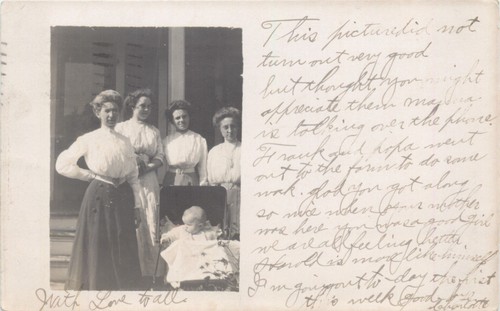 This picture did not
turn out very good
but thought you might
appreciate them mamma
is talking over the phone.
Frank and papa went
out to the farm to do some
work. glad you got along
so nice when your mother
was here you was a good girl
we are all feeling better
Harold is more like himself
I'm going out to day the first
this week good
With Love to all